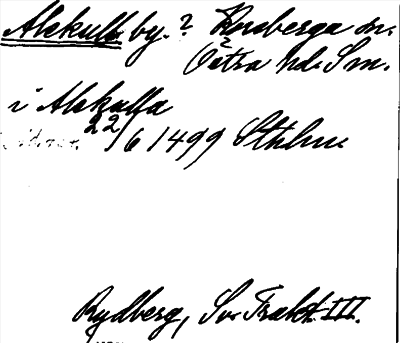 Alekulla by. ? Korsberga sn.
Östra hd. Sm.
i Alekulla
22/6 1499 Sthlm
Rydberg, Sv Trakt. III.